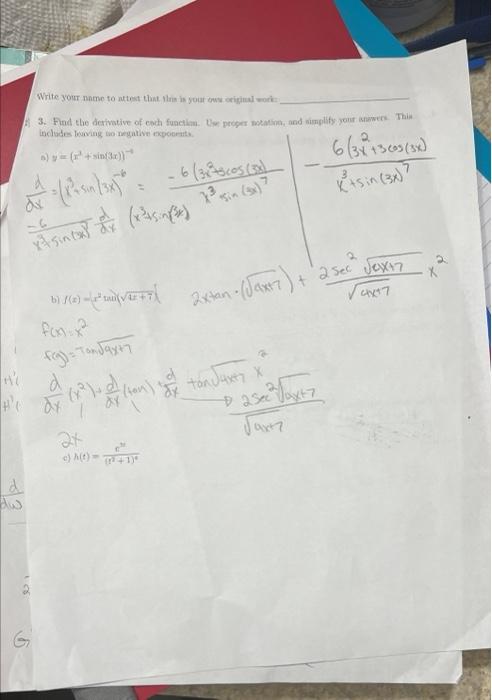 Write your name to attest that this is your own original work:
3. Find the derivative of each function. Use proper notation, and simplify your answers. This
includes leaving no negative exponents.
a) y = (x³ + sin(3x))⁻⁶
d/dx = (x³+sin(3x))⁻⁶ = -6(3x²+3cos(3x)) / x³+sin(3x)⁷
-6(3x²+3cos(3x)) / x³+sin(3x)⁷
-6 / x³+sin(3x)⁷ d/dx (x³+sin(3x))
b) f(x) = x² tan(√4x+7) 2xtan·(√4x+7) + 2sec²√4x+7 / √4x+7 x²
f(x)=x²
f(g)=Tan√4x+7
d/dx (x²)+d/dx(tan)+d/dx tan√4x+7 x²
2sec²√4x+7 / √4x+7
2x
c) h(t) =
d
dw
2
G